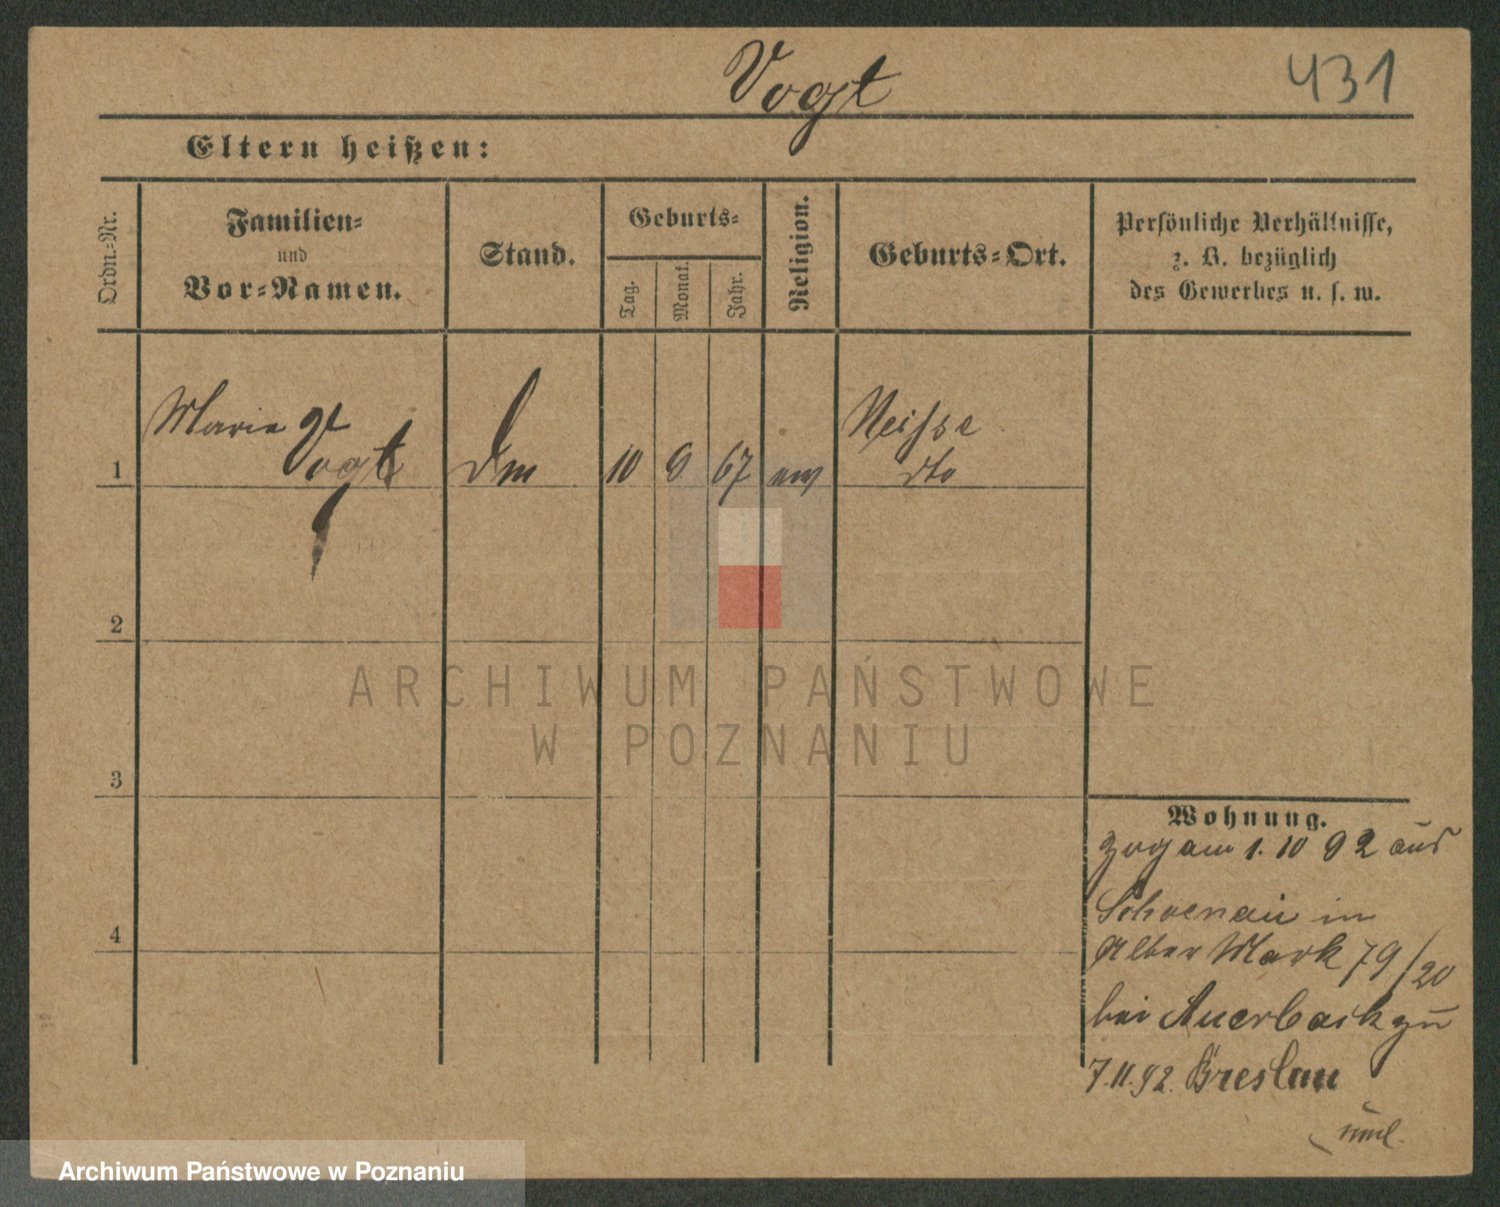 Vogt
431
Eltern heißen:
Ordn.-Nr.
Familien-
und
Vor-Namen.
Stand.
Geburts-
Tag.
Monat.
Jahr.
Religion.
Geburts-Ort.
Persönliche Verhältnisse,
z. B. bezüglich
des Gewerbes u. s. w.
Marie
Vogt
Neisse
1 10 9 67 dto
2
ARCHIWUM PAŃSTWOWE
W POZNANIU
3
Wohnung.
zog am 1. 10 92 aus
Schoenau in
Alter Mark 79/20
4
bei Auerback zu
7.11.92. Breslau
Archiwum Państwowe w Poznaniu